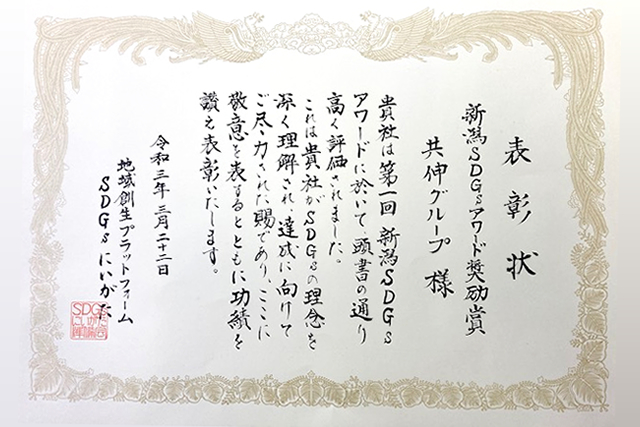 表彰状
新潟SDGsアワード奨励賞
共伸グループ 様
貴社は第一回 新潟SDGs
アワードに於いて、頭書の通り
高く評価されました。
これは貴社がSDGsの理念を
深く理解され、達成に向けて
ご尽力された賜であり、ここに
敬意を表するとともに功績を
讃え表彰いたします。
令和三年三月二十二日
地域創生プラットフォーム
SDGsにいがた